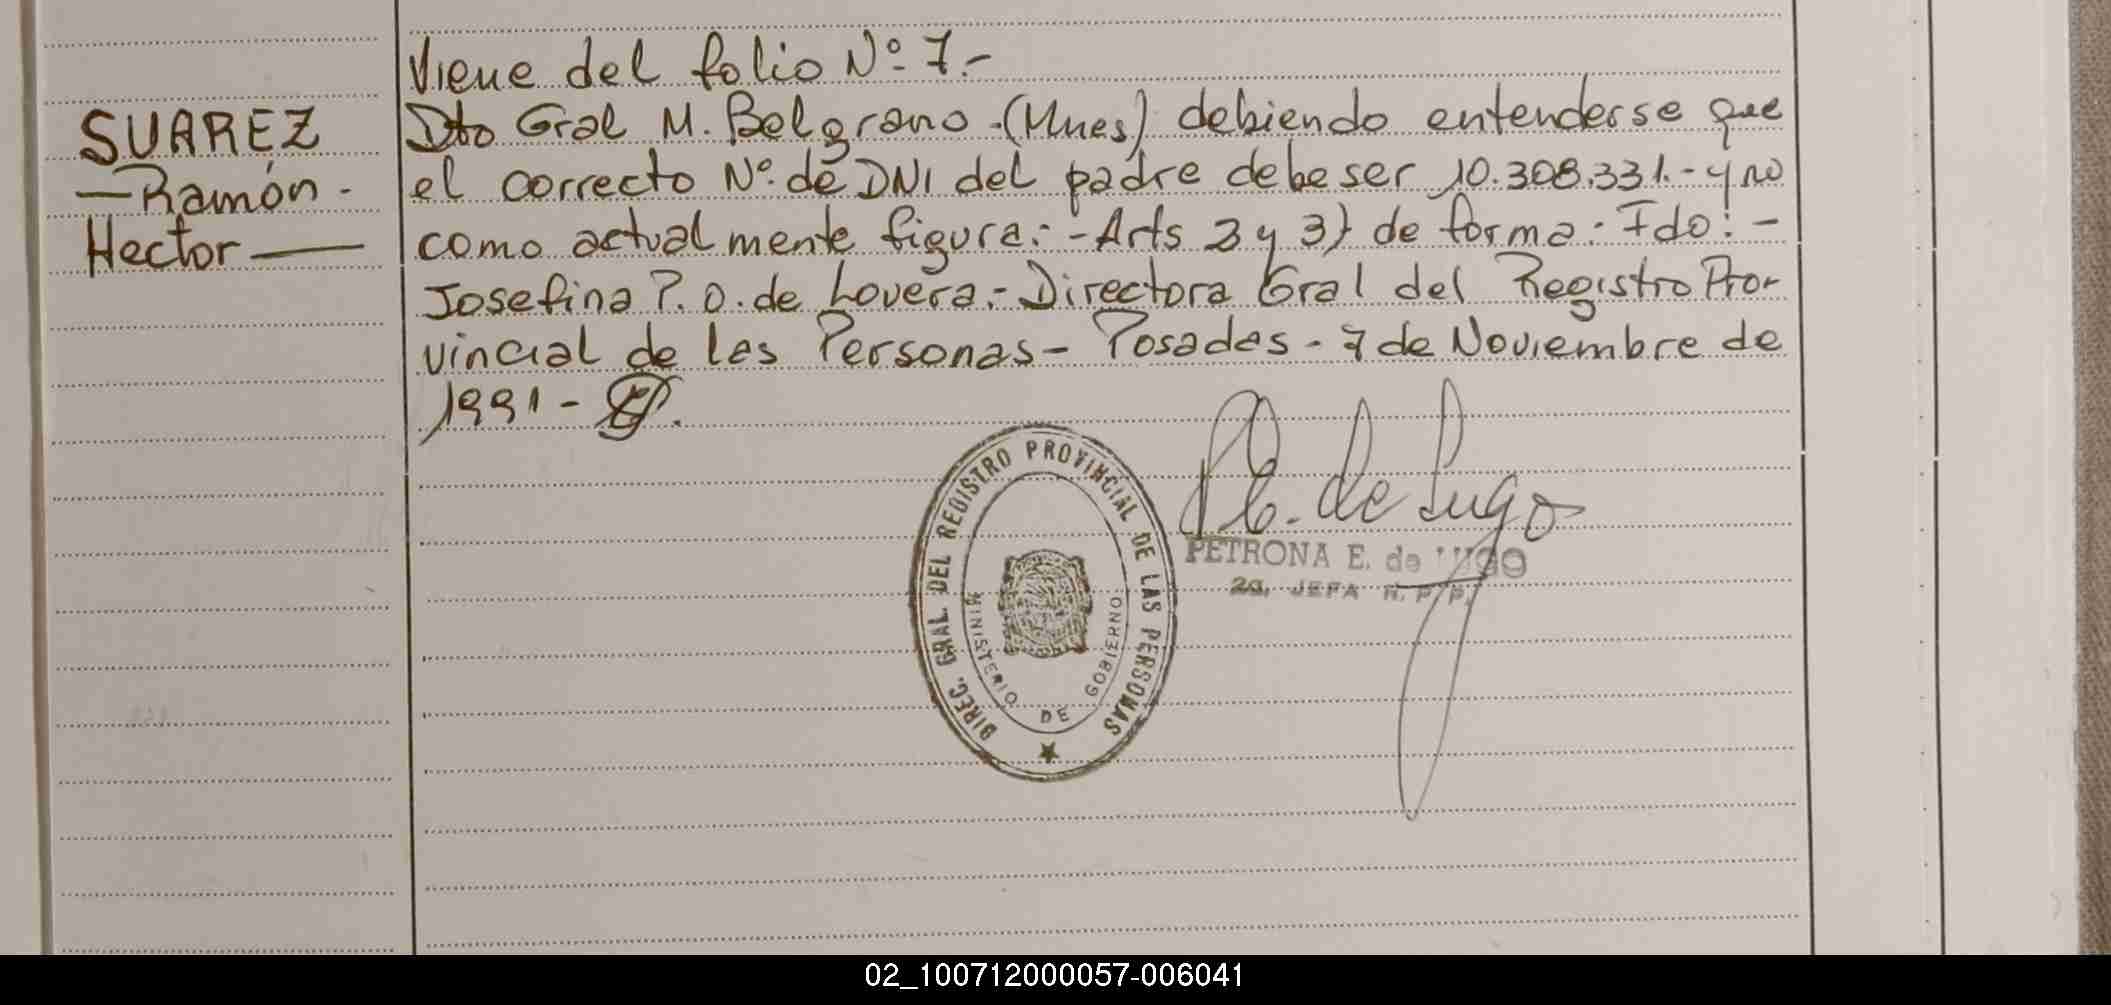 Viene del folio Nº 7.-
SUAREZ
—Ramón-
Hector—
Dto Gral M. Belgrano-(Mnes) debiendo entenderse que
el correcto Nº de DNI del padre debe ser 10.308.331.- y no
como actualmente figura.- -Arts 2 y 3) de forma. Fdo:-
Josefina P. O. de Lovera.- Directora Gral del Registro Pro-
vincial de las Personas- Posadas - 7 de Noviembre de
1991-
DIREC. GRAL. DEL REGISTRO PROVINCIAL DE LAS PERSONAS
MINISTERIO DE GOBIERNO
de Lugo
PETRONA E. de LUGO
2a. JEFA R. P. P.
02_100712000057-006041